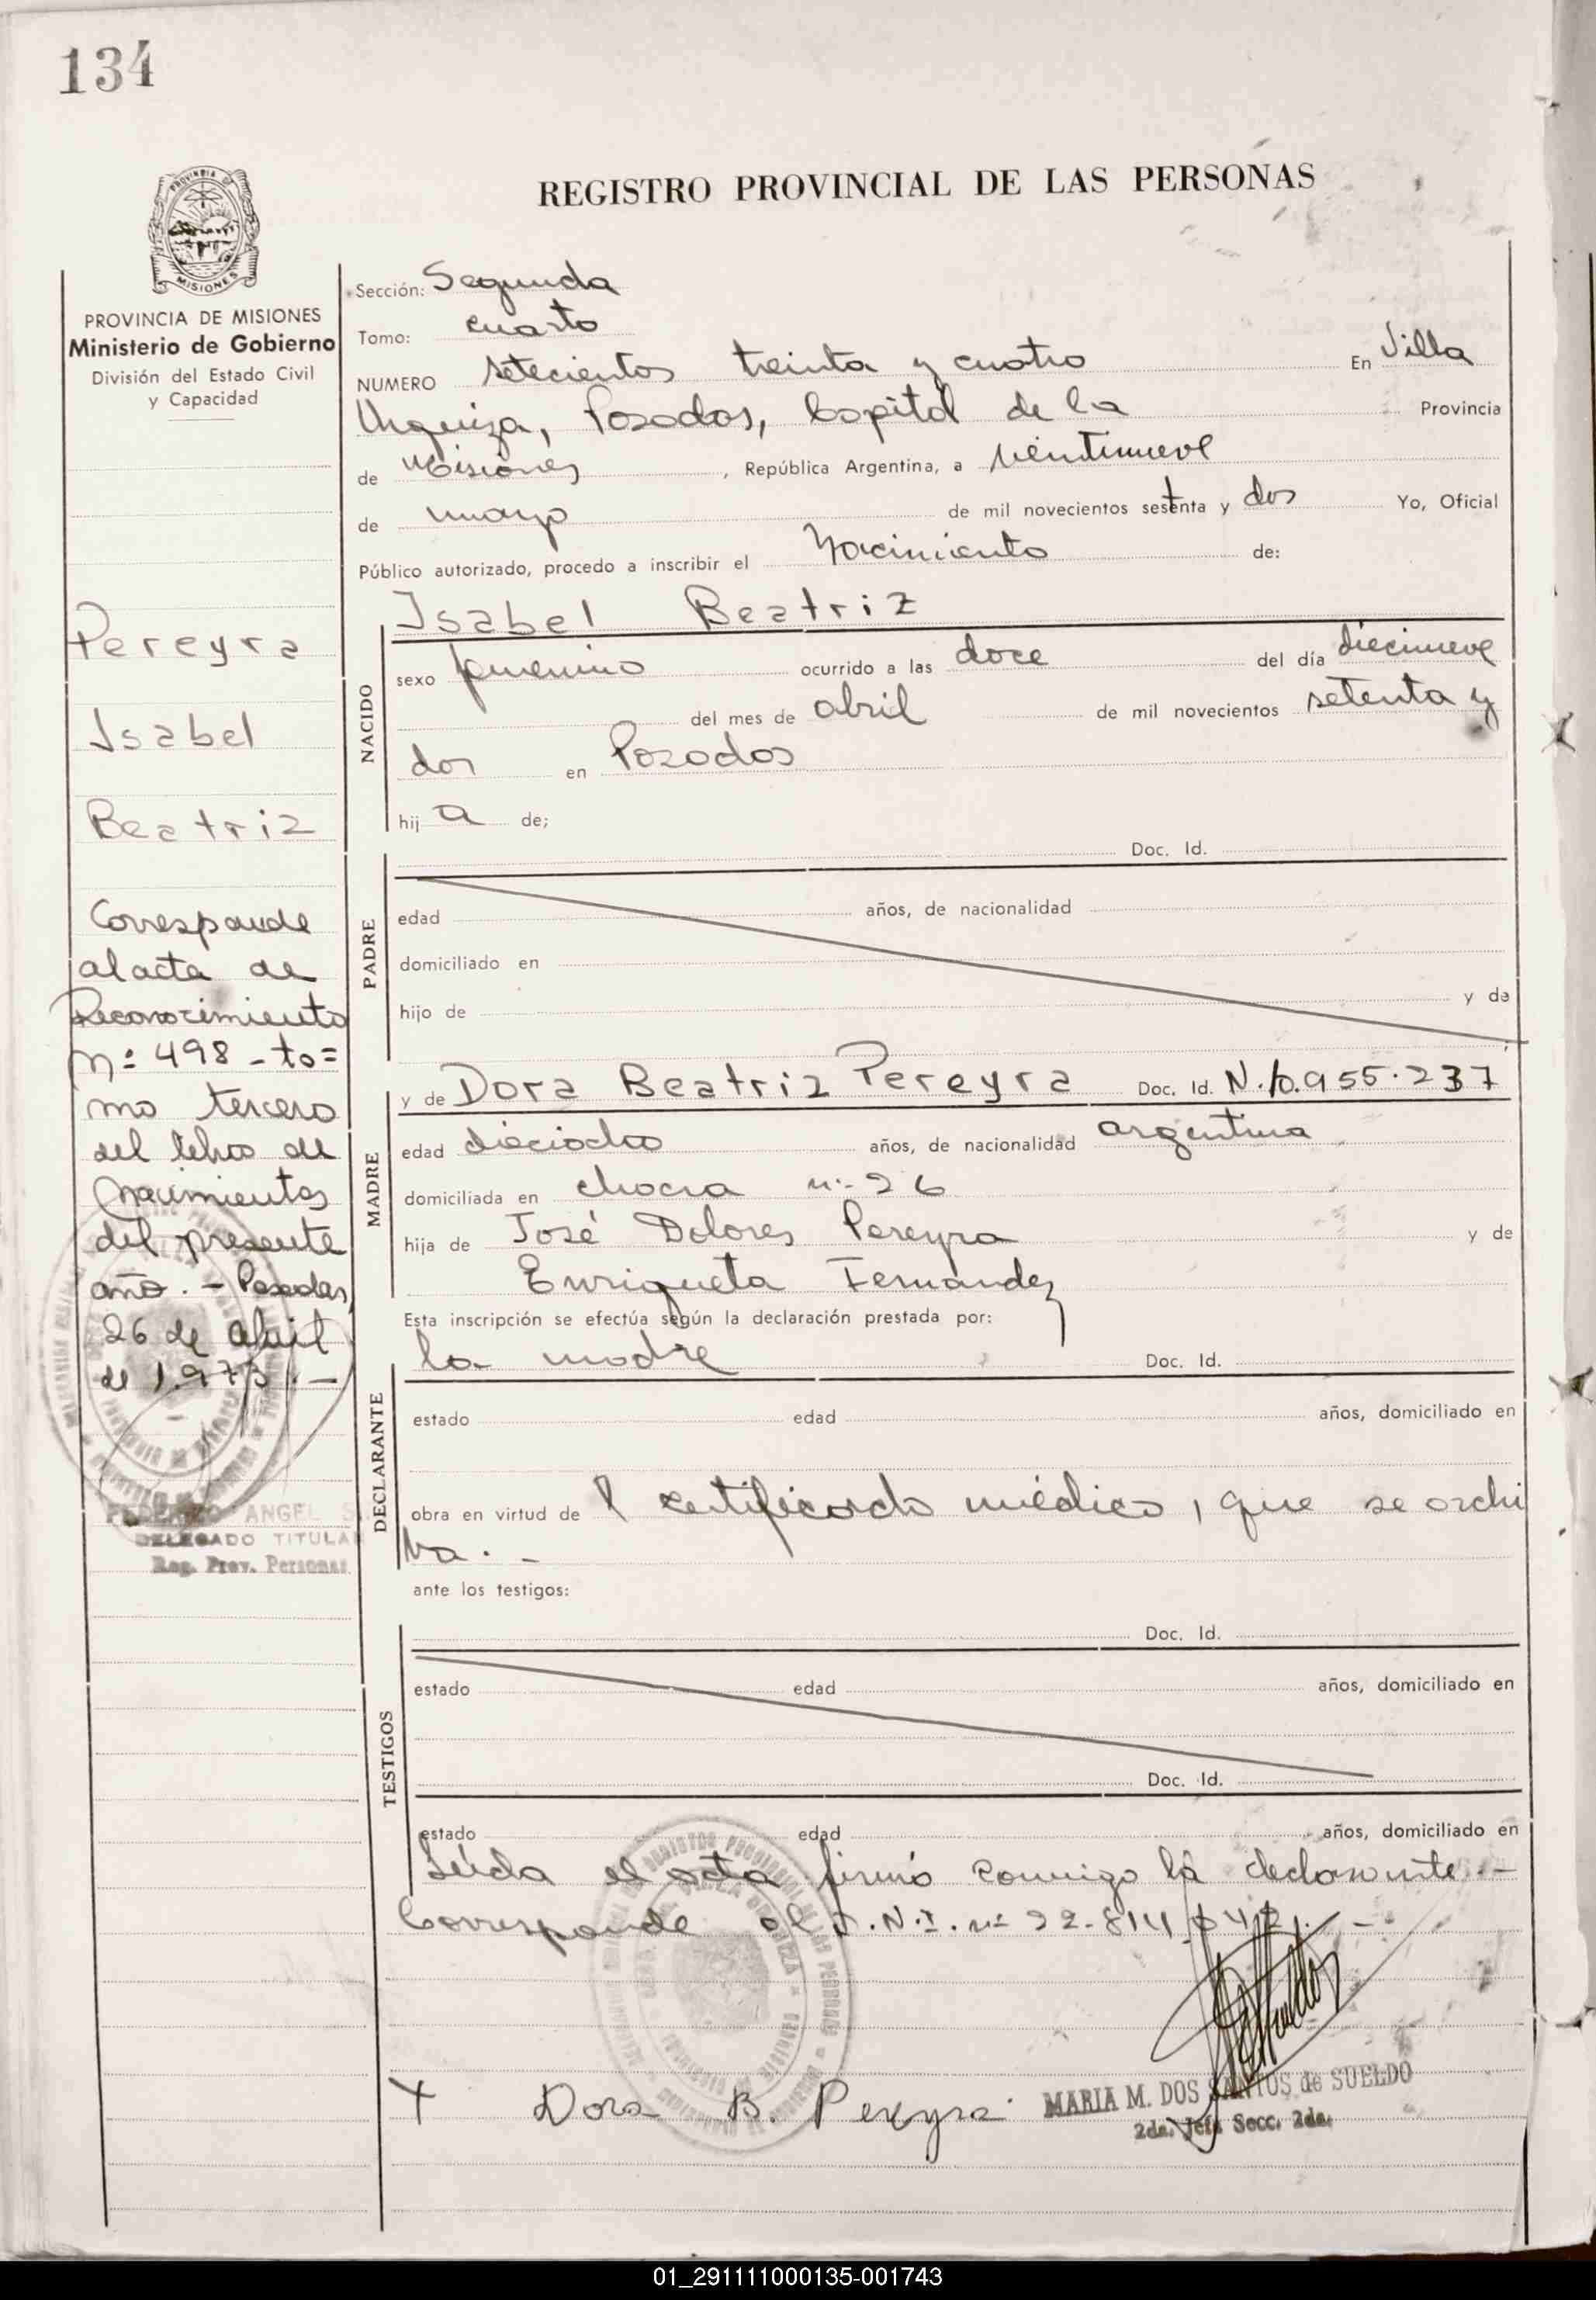 134
REGISTRO PROVINCIAL DE LAS PERSONAS
PROVINCIA DE MISIONES
Ministerio de Gobierno
División del Estado Civil
y Capacidad
Pereyra
Isabel
Beatriz
Corresponde
al acta de
Reconocimiento
Nº 498 - to=
mo tercero
del libro de
Nacimientos
del presente
año. - Posadas,
26 de abril
de 1.973. -
FEDERICO ANGEL
DELEGADO TITULAR
Reg. Prov. Personas
Sección: Segunda
Tomo: cuarto
NUMERO setecientos treinta y cuatro En Villa
Urquiza, Posadas, Capital de la Provincia
de Misiones, República Argentina, a veintinueve
de mayo de mil novecientos setenta y dos Yo, Oficial
Público autorizado, procedo a inscribir el Nacimiento de:
NACIDO
Isabel Beatriz
sexo femenino ocurrido a las doce del día diecinueve
del mes de abril de mil novecientos setenta y
dos en Posadas
hija de;
PADRE
Doc. Id.
edad años, de nacionalidad
domiciliado en
hijo de y de
MADRE
y de Dora Beatriz Pereyra Doc. Id. N. 10.955.237
edad dieciocho años, de nacionalidad argentina
domiciliada en chacra nº 26
hija de José Dolores Pereyra y de
Enriqueta Fernandez
Esta inscripción se efectúa según la declaración prestada por:
DECLARANTE
la madre Doc. Id.
estado edad años, domiciliado en
obra en virtud de l certificado médico, que se archi
va. -
ante los testigos:
TESTIGOS
Doc. Id.
estado edad años, domiciliado en
Doc. Id.
estado edad años, domiciliado en
Leída el acta firmó conmigo la declarante. -
Corresponde al D.N.I. nº 22.814
Dora B. Pereyra
MARIA M. DOS SANTOS de SUELDO
2da. Jefa Secc. 2da.
01_291111000135-001743